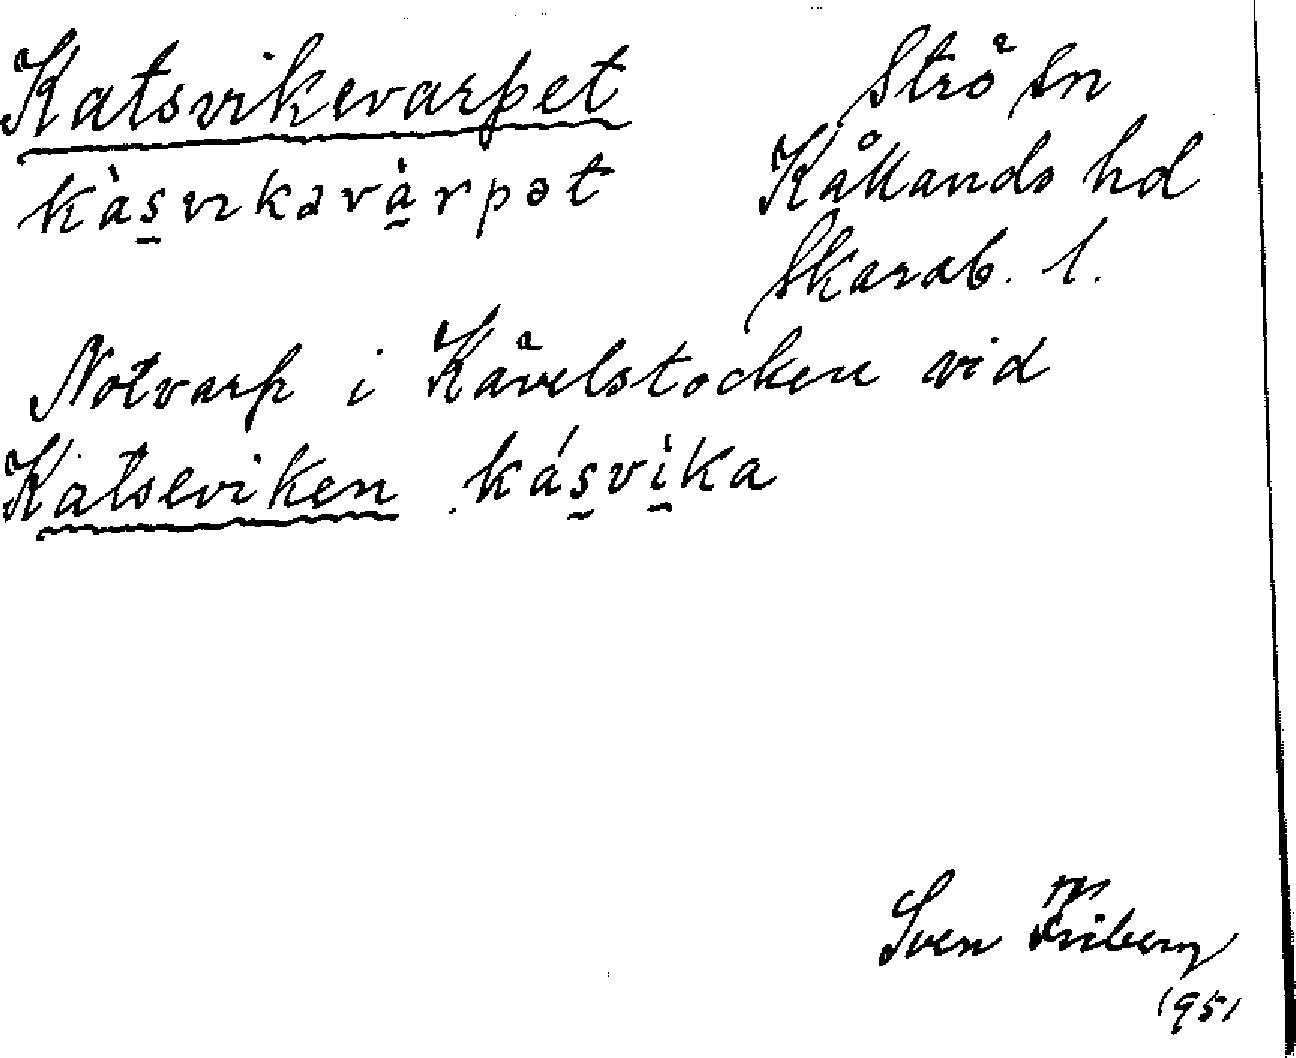 Katsvikevarpet
kàs̱vıkavà̱rpət
Strö sn
Kållands hd
Skarab. l.
Notvarp i Kävelstocken vid
Katseviken kás̱vì̱ka
Sven Friberg
1951